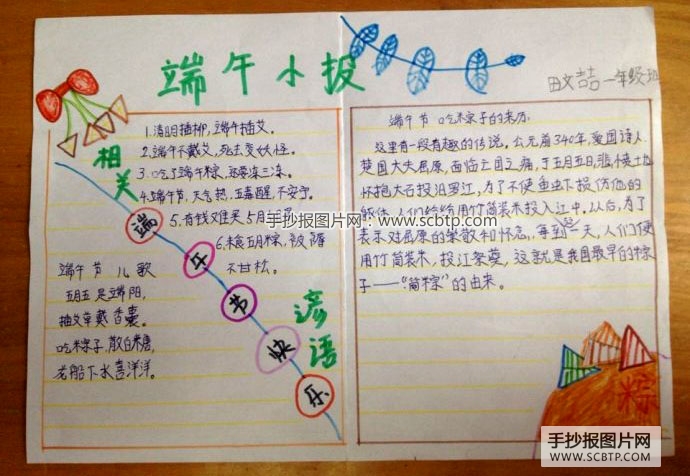 端午小报
田文喆一年级班
相关
谚语
端午节快乐
1.清明插柳,端午插艾。
2.端午不戴艾,死去变妖怪。
3.吃了端午粽,还要冻三冻。
4.端午节,天气热,五毒醒,不安宁。
5.有钱难买5月
6.未食五月粽,被
不甘松。
端午节 儿歌
五月五是端阳,
插艾草戴香囊。
吃粽子,散白糖,
龙船下水喜洋洋。
端午节吃粽子的来历:
这里有一段有趣的传说。公元前340年,爱国诗人、
楚国大夫屈原,面临亡国之痛,于五月五日,悲愤
怀抱大石投汨罗江,为了不使鱼虾损伤他的
人们纷纷用竹筒装米投入江中。以后,为了
表示对屈原的崇敬和怀念,每到这一天,人们便
用竹筒装米,投江祭奠,这就是我国最早的粽
子——“筒粽”的由来。
粽
手抄报图片网:www.scbtp.com
手抄报图片网
WWW.SCBTP.COM